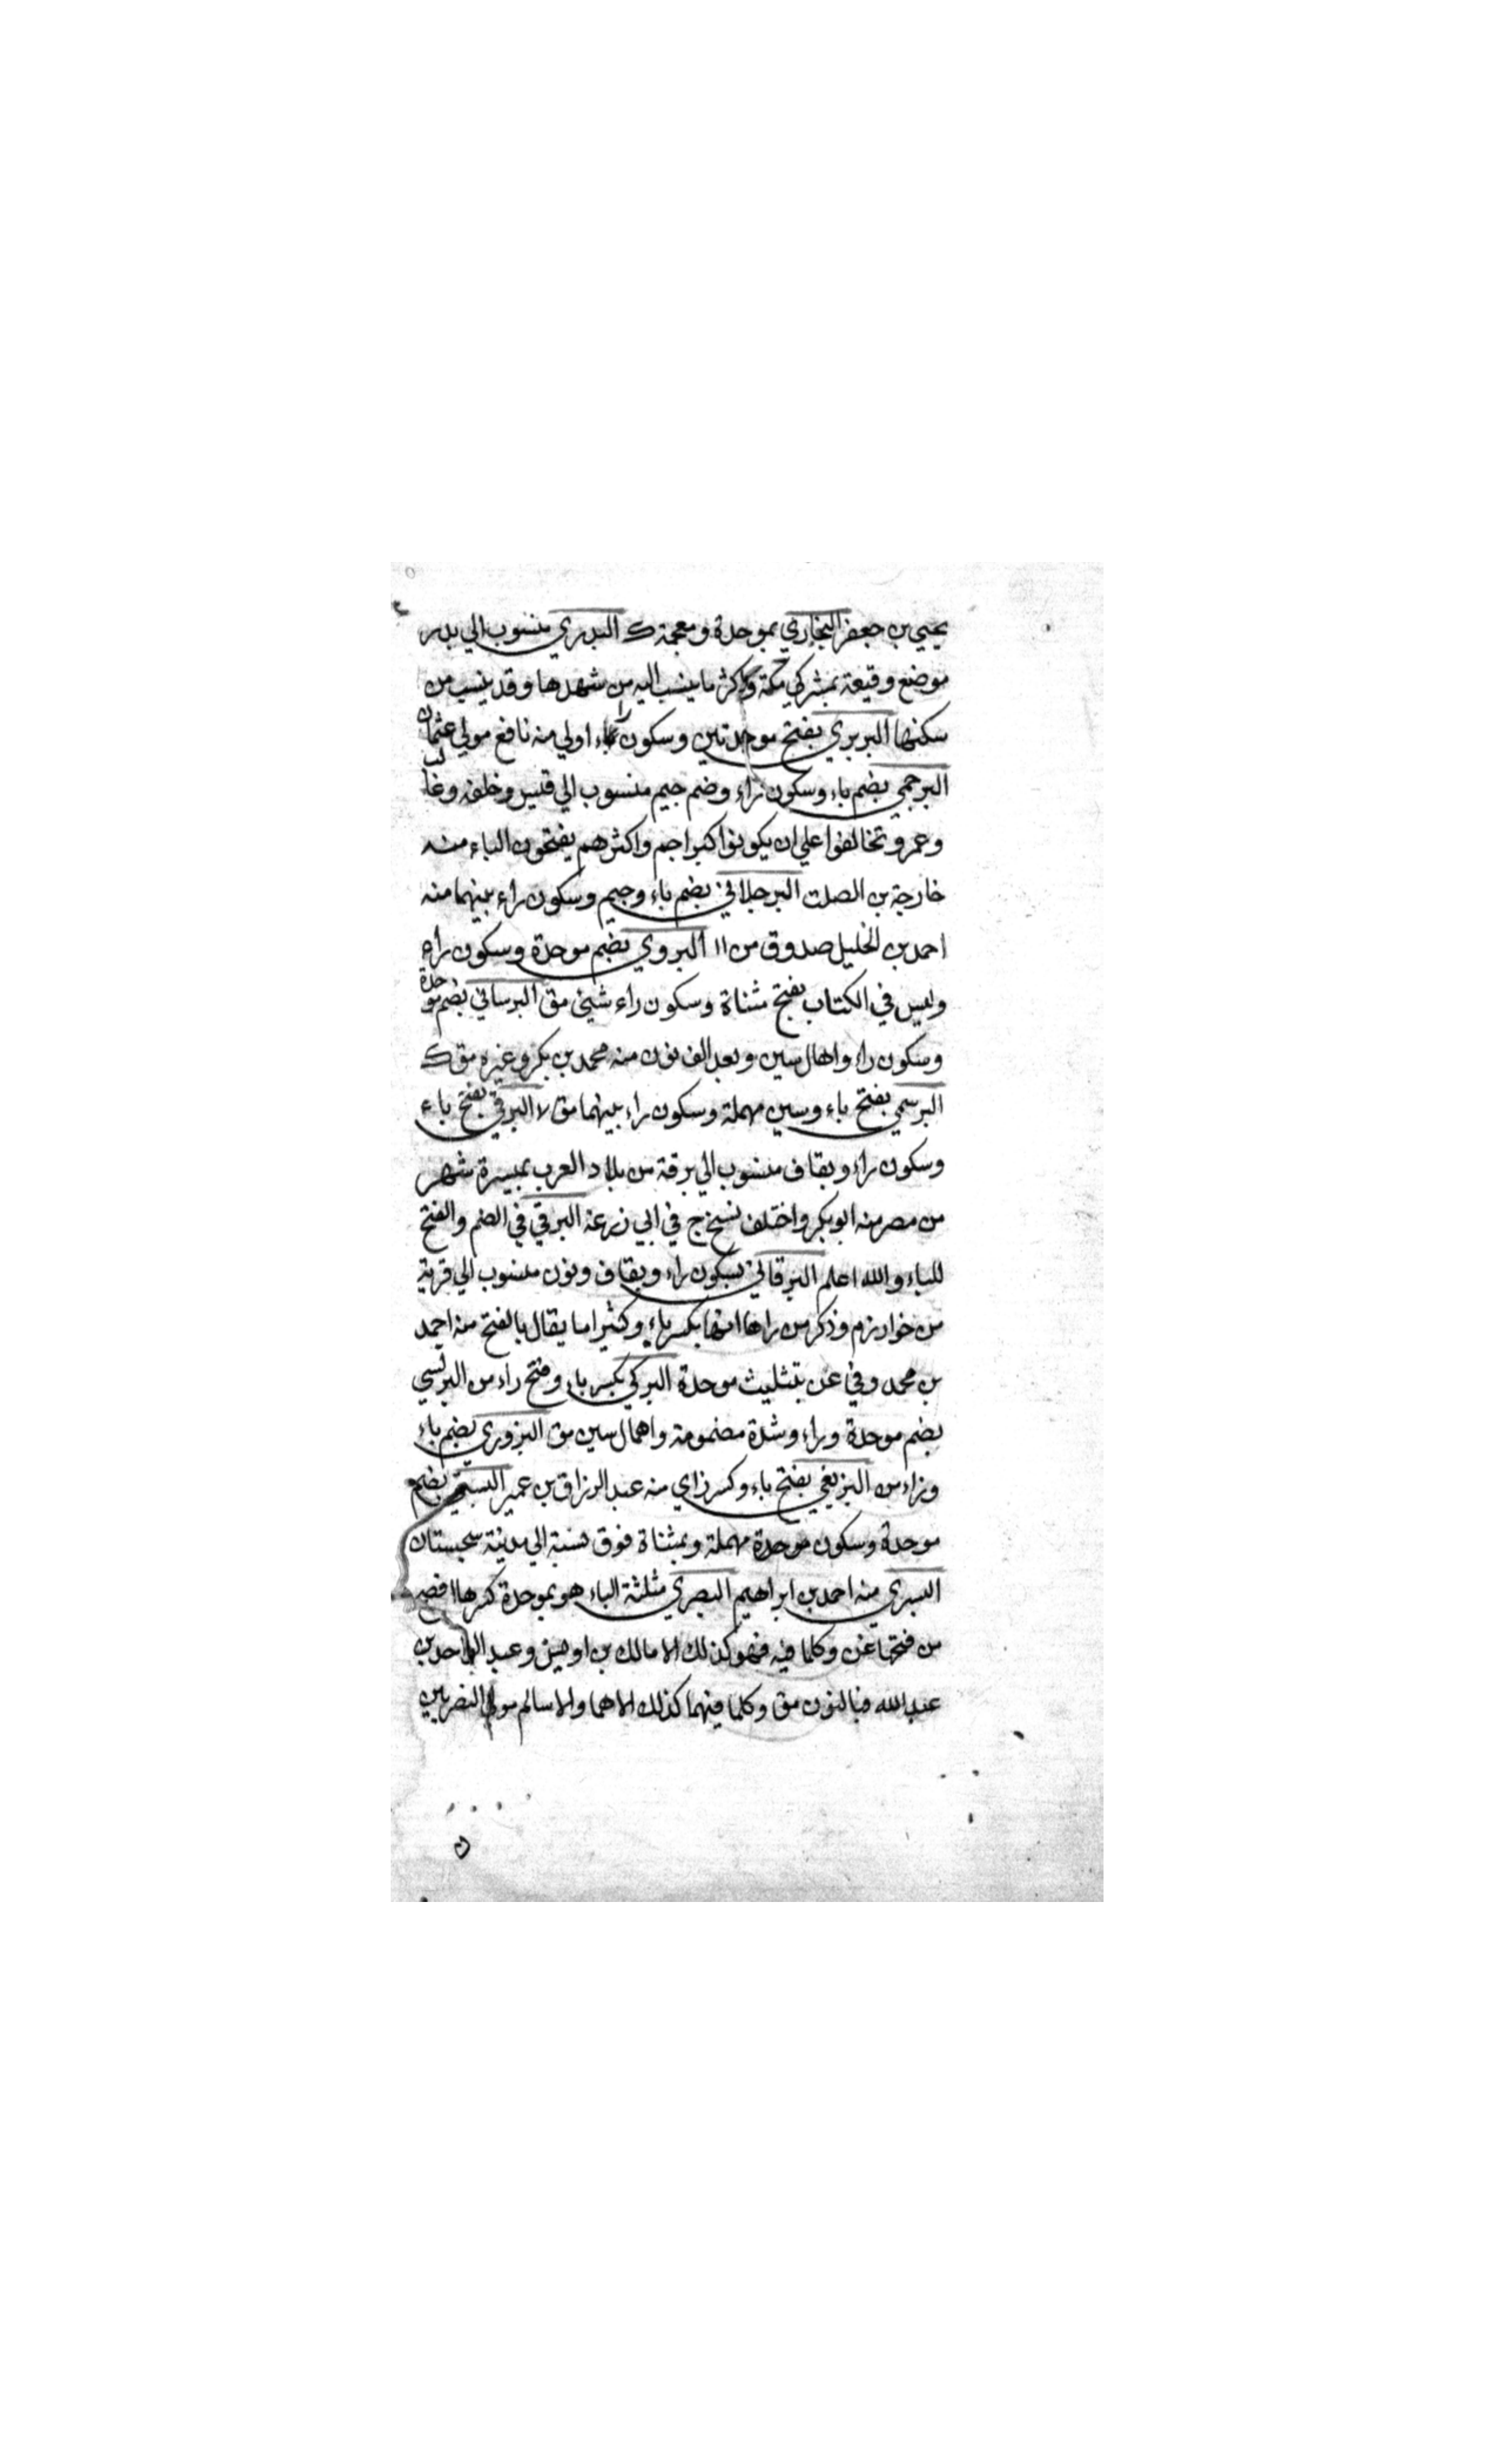 يحيي بن جعفر البخاري بموحدة ومعجمة ك البدري منسوب الي بدر
موضع وقيعة بمشركي مكة واكثر ما ينسب اليه من شهدها وقد ينسب من
سكنها البربري بفتح موحدتين وسكون راء اولي منه نافع مولي عثمان
البرجمي بضم باء وسكون راء وضم جيم منسوب الي قيس وخلفه وغالب
وعمرو تخالفوا علي ان يكونوا كبراجم واكثرهم يفتحون الباء منه
خارجة بن الصلت البرجلاني بضم باء وجيم وسكون راء بينهما منه
احمد بن الخليل صدوق من ١١ البروي بضم موحدة وسكون راء
وليس في الكتاب بفتح مثناة وسكون راء شيئ مق البرساني بضم موحدة
وسكون راء واهمال سين وبعد الف نون منه محمد بن بكر وغيره مق ك
البرسمي بفتح باء وسين مهملة وسكون راء بينهما مق لا البرقي بفتح باء
وسكون راء وبقاف منسوب الي برقة من بلاد العرب بمسيرة شهر
من مصر منه ابو بكر واختلف نسخ ج في ابي زرعة البرقي في الضم والفتح
للباء والله اعلم البرقاني بسكون راء وبقاف ونون منسوب الي قرية
من خوارزم وذكر من راها انها بكسر باء وكثيرا ما يقال بالفتح منه احمد
بن محمد وفي غن بتثليث موحدة البركي بكسر باء وفتح راء من البرلسي
بضم موحدة وراء وشدة مضمومة واهمال سين مق البزوري بضم باء
وزاء من البزيغي بفتح باء وكسر زاي منه عبد الرزاق بن عمير البستي بضم
موحدة وسكون موحدة مهملة وبمثناة فوق نسبة الي مدينة سجستان
البسري منه احمد بن ابراهيم البصري مثلثة الباء هو بموحدة كسرها افصح
من فتحها غن وكلما فيه فهو كذلك الا مالك بن اوس وعبد الواحد بن
عبد الله فبالنون مق وكلما فيهما كذلك الا هما والا سالم مولي النصريين